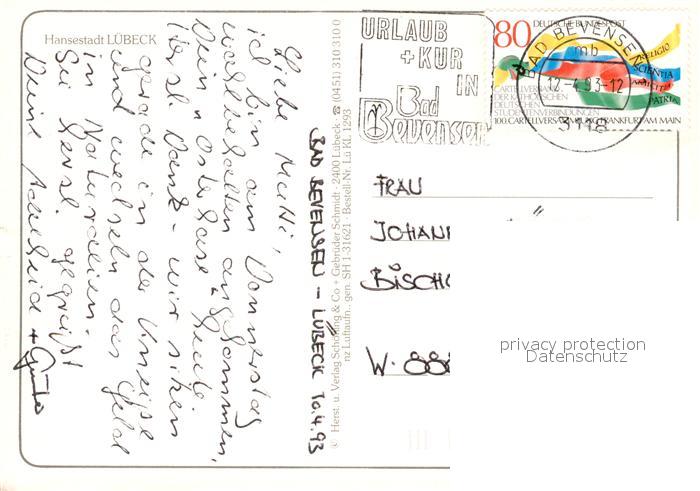 Hansestadt LÜBECK
Liebe Mutti,
ich bin am Donnerstag
wohlbehalten angekommen,
Dein "Osterhase" heute.
Herzl. Dank - wir sitzen
gerade in der Kneipe
und wechseln das Geld
in Naturalien.
Sei herzl. gegrüßt
Deine Adelheid + Günter
BAD BEVENSEN - LÜBECK 10.4.93
© Herst. u. Verlag Schöning & Co + Gebrüder Schmidt · 2400 Lübeck ☎ (0451) 310 310 0
nz Luftaufn., gen. SH 1-31621 · Bestell-Nr. Lü KL 1293
URLAUB
+ KUR
IN
Bad
Bevensen
80 DEUTSCHE BUNDESPOST
RELIGIO
SCIENTIA
AMICITIA
PATRIA
CARTELLVERBAND
DER KATHOLISCHEN
DEUTSCHEN
STUDENTENVERBINDUNGEN
100.CARTELLVERSAMMLUNG FRANKFURT AM MAIN
BAD BEVENSEN
mb
12.-4.93-12
3118
FRAU
JOHANN
BISCHO
W. 88
privacy protection
Datenschutz